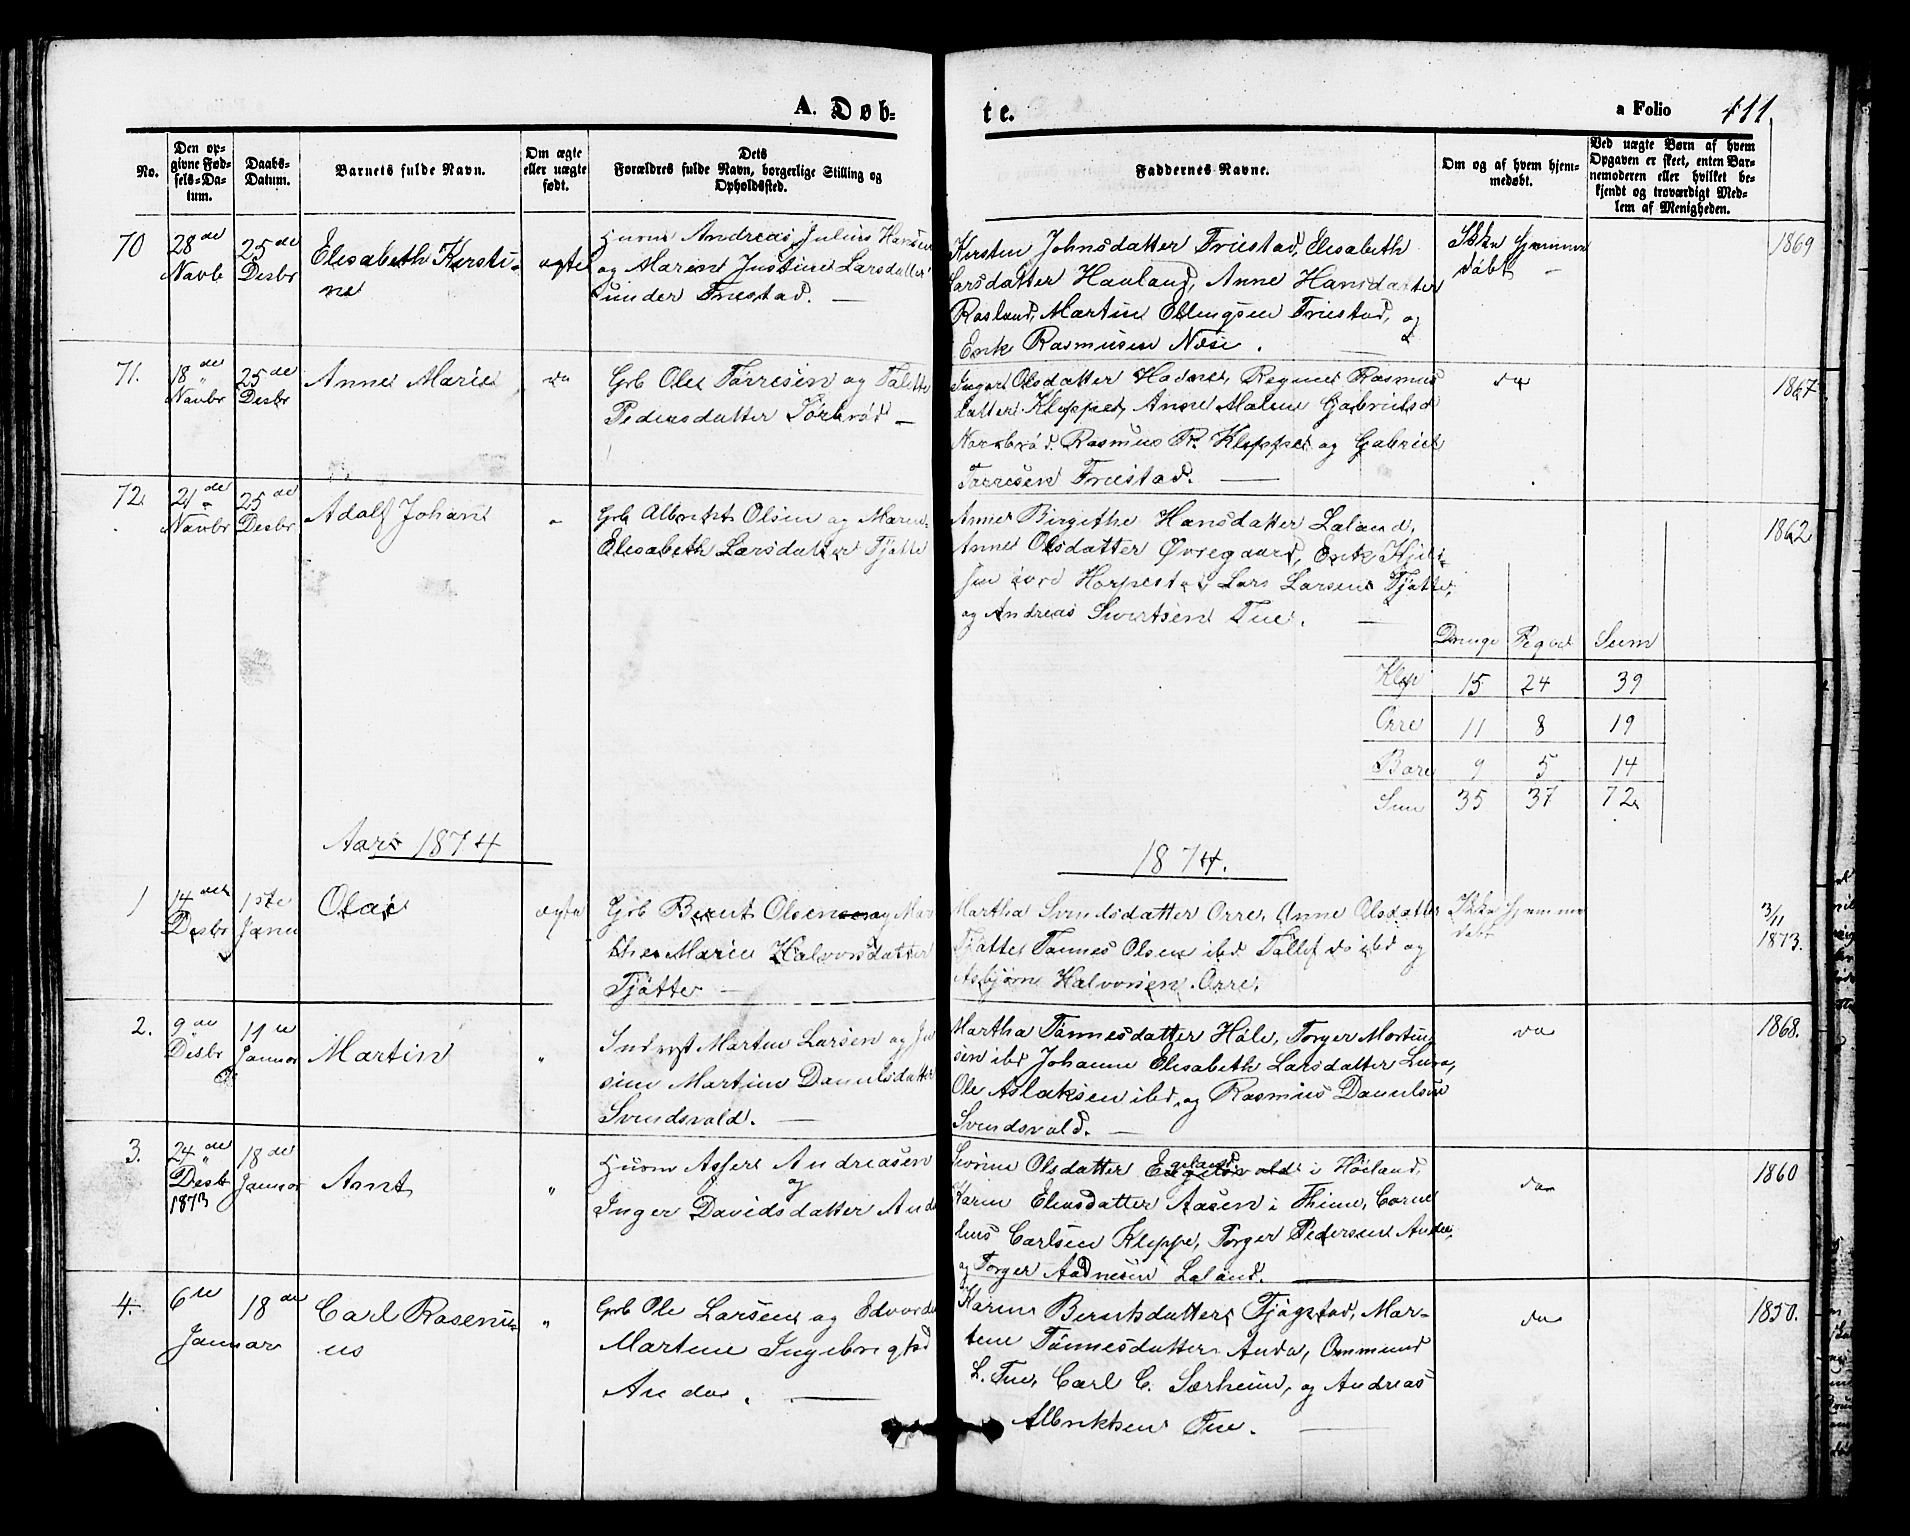 A. Døb=
te.
a Folio 111.
No.
Den opgivne Fødsels-Datum.
Daabs-Datum.
Barnets fulde Navn.
Om ægte eller uægte født.
Dets Forældres fulde Navn, borgerlige Stilling og Opholdssted.
Faddernes Navne.
Om og af hvem hjemmedøbt.
Ved uægte Børn af hvem Opgaven er skeet, enten Barnemoderen eller hvilket bekjendt og troværdigt Medlem af Menigheden.
70
28de Novbr
25de Desbr
Elisabeth Kirstine
ægte
Huusm Andreas Julius Hansen
og Maren Justine Larsdatter
under Friestad. —
Kirsten Johnsdatter Friestad, Elisabeth
Larsdatter Hauland, Anne Hansdatter
Rosland, Martin Ellingsen Friestad, og
Erik Rasmusen Næse.
Ikke hjemmedøbt —
1869
71.
18de Novbr
25de Desbr
Anne Marie
do
Grb Ole Tørresen og Talette
Pedersdatter Sørbrød —
Ingeri Olsdatter Hodne, Regine Rasmusdatter
Kleppe, Anne Malene Gabrielsd
Norebrød, Rasmus R. Kleppe og Gabriel
Tørresen Friestad. —
do
1867
72.
21de Novbr
25de Desbr
Adolf Johan
"
Grb Albrikt Olsen og Maren
Elisabeth Larsdatter Tjøtte
Anne Birgithe Hansdatter Laland,
Anne Olsdatter Øvregaard, Erik
Lars Larsen Tjøtte,
og Andreas Sivertsen Tue. —
1862
Drenge Piger Sum
Klep 15 24 39
Orre 11 8 19
Bore 9 5 14
Sum 35 37 72
Aar 1874
1874.
1
14de Desbr
1ste Janu
Olai
ægte
Grb Berent Olsen og Mar
the Marie Halvorsdatter
Tjøtte —
Martha Svendsdatter Orre, Anne Olsdatter
Tjøtte, Tønnes Olsen ibd Tollef do ibd og
Asbjørn Halvorsen Orre.
Ikke hjemmedøbt
3/11 1873.
2.
9de Desbr
11te Januar
Martin
"
Indrst Martin Larsen og
Martine Danielsdatter
Svendsvold. —
Martha Tønnesdatter Hole, Torger Mortensen
ibd Johanne Elisabeth Larsdatter
Ole Aslaksen ibd, og Rasmus Danielsen
Svendsvold. —
do
1868.
3.
24de Desb 1873
18de Januar
Arnt
"
Husm Asser Andreasen
og
Inger Davidsdatter Anda
Sevrine Olsdatter Egeland i Høiland,
Karen Eliasdatter Aasen i Thime, Cornelius
Carlsen Kleppe, Torger Pedersen Anda,
og Torger Aadnesen Laland. —
do
1860
4.
6te Januar
18de
Carl Rosenius
"
Grb Ole Larsen og Edvarda
Martine Ingebrigtsd
Anda. —
Karen Berntsdatter Tjøgstad, Martine
Tønnesdatter Anda, Ommund
L. Tue, Carl C. Særheim, og Andreas
Albriktsen Tue. —
do
1850.